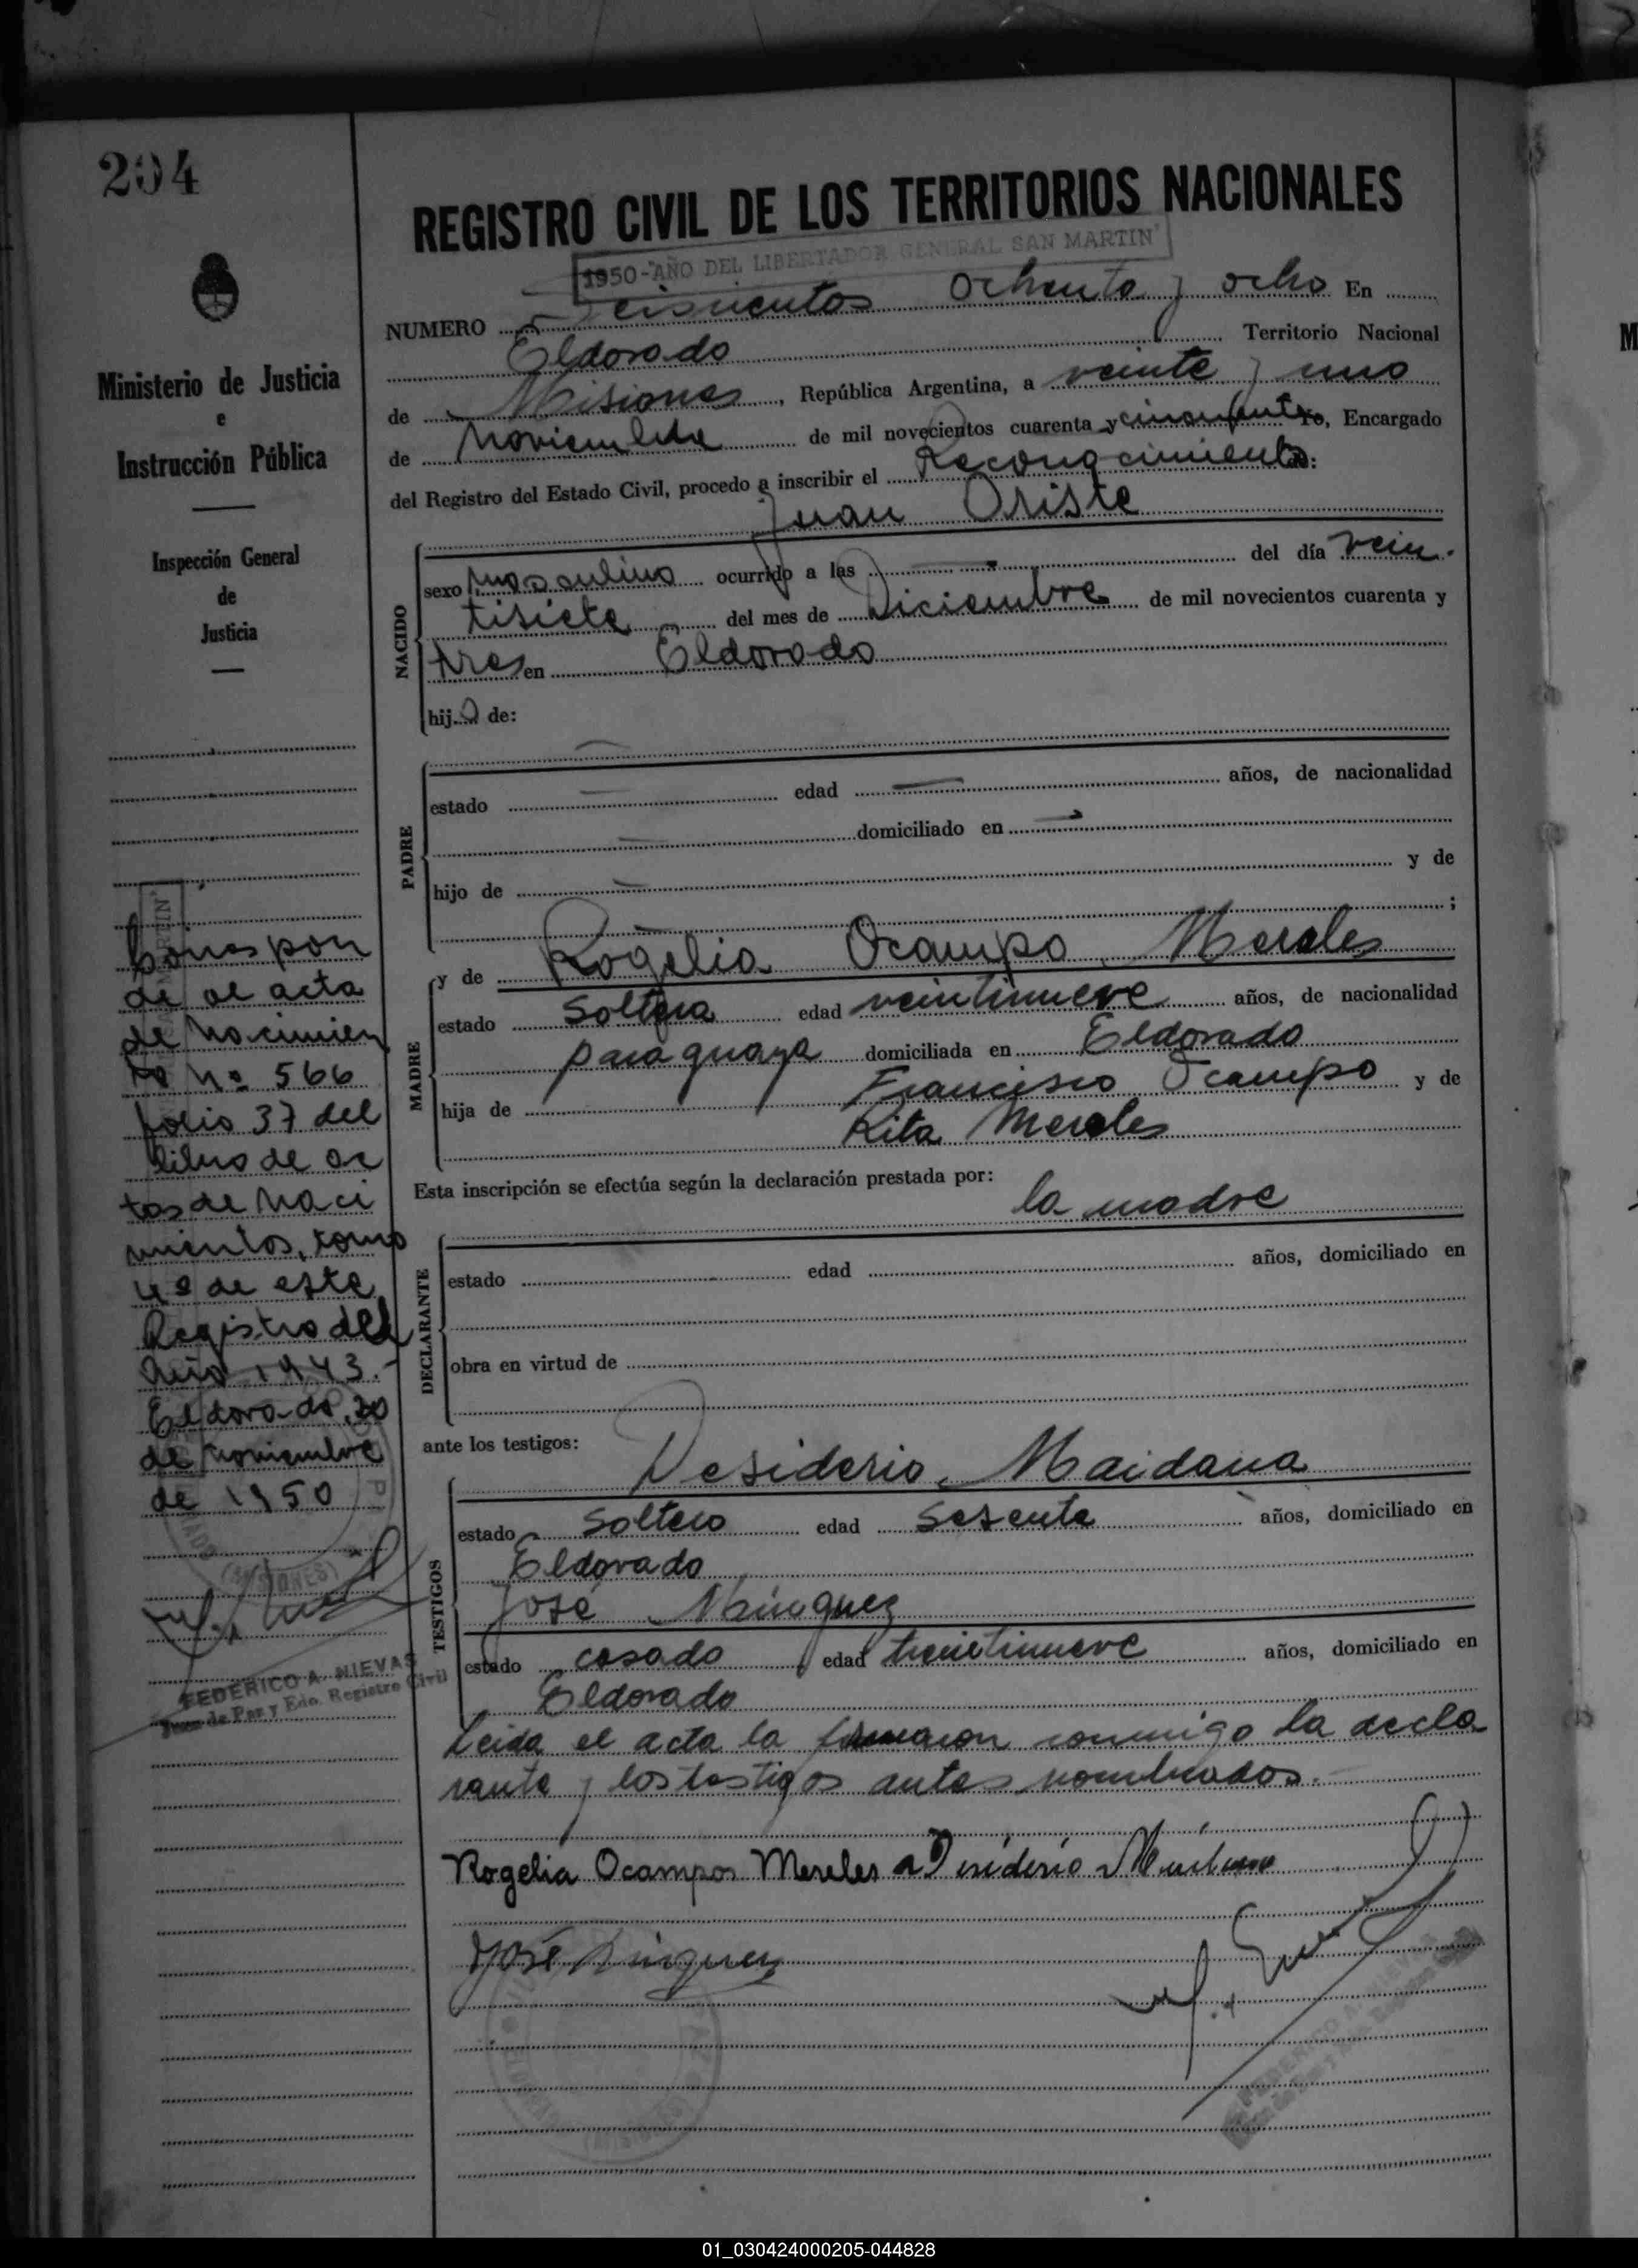 204
REGISTRO CIVIL DE LOS TERRITORIOS NACIONALES
1950-"AÑO DEL LIBERTADOR GENERAL SAN MARTIN"
NUMERO Seiscientos Ochenta y ocho En
Eldorado Territorio Nacional
de Misiones, República Argentina, a veinte y uno
de Noviembre de mil novecientos cuarenta y cincuenta Yo, Encargado
del Registro del Estado Civil, procedo a inscribir el Reconocimiento:
Juan Oriste
NACIDO
sexo masculino ocurrido a las del día vein-
tisiete del mes de Diciembre de mil novecientos cuarenta y
tres en Eldorado
hijo de:
PADRE
estado edad años, de nacionalidad
domiciliado en
hijo de y de
;
MADRE
y de Rogelia Ocampo Mereles
estado Soltera edad veintinueve años, de nacionalidad
paraguaya domiciliada en Eldorado
hija de Francisco Ocampo y de
Rita Mereles
Esta inscripción se efectúa según la declaración prestada por:
la madre
DECLARANTE
estado edad años, domiciliado en
obra en virtud de
ante los testigos:
Desiderio Maidana
TESTIGOS
estado Soltero edad Sesenta años, domiciliado en
Eldorado
José Minguez
estado casado edad treintinueve años, domiciliado en
Eldorado
Leida el acta la firmaron conmigo la decla
rante y los testigos antes nombrados.
Rogelia Ocampos Mereles Desiderio
José Minguez
Ministerio de Justicia
e
Instrucción Pública
Inspección General
de
Justicia
Corespon
de al acta
de Nacimien
to Nº 566
folio 37 del
libro de ac
tas de Naci
mientos, tomo
4º de este
Registro del
Año 1943.-
Eldorado, 20
de noviembre
de 1950
(MISIONES)
FEDERICO A. NIEVAS
Juez de Paz y Edo. Registro Civil
01_030424000205-044828